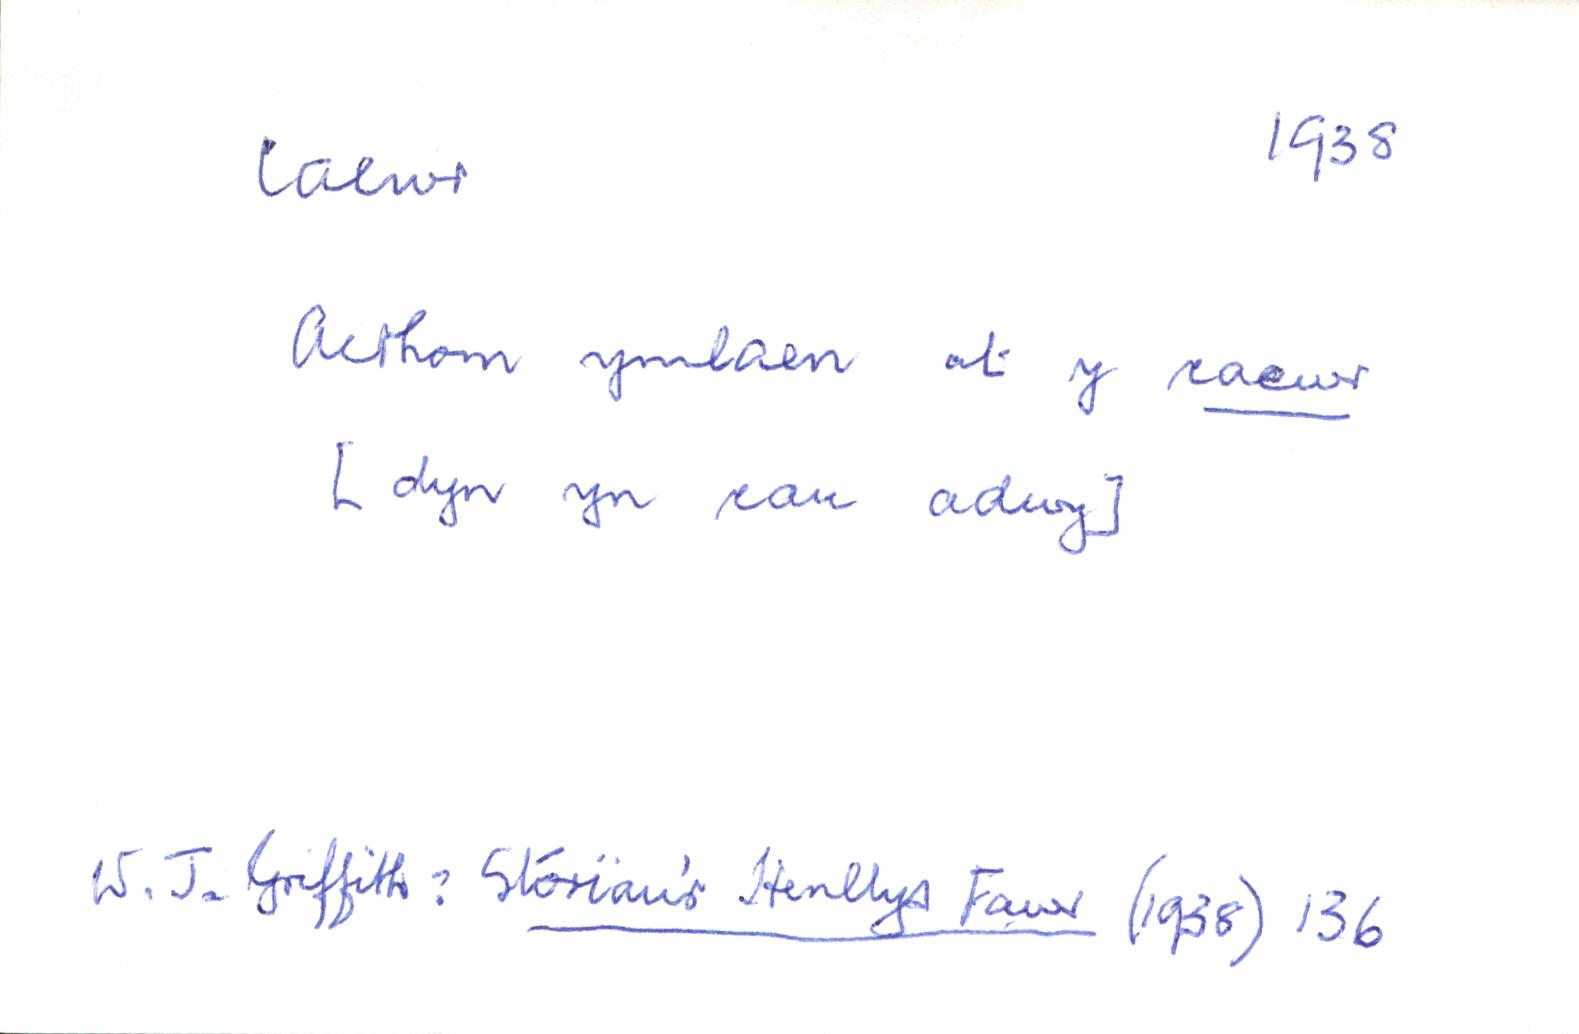 Caewr 1938
Aethom ymlaen at y caewr
[dyn yn cau adwy]
W. J. Griffith: Storïau'r Henllys Fawr (1938) 136